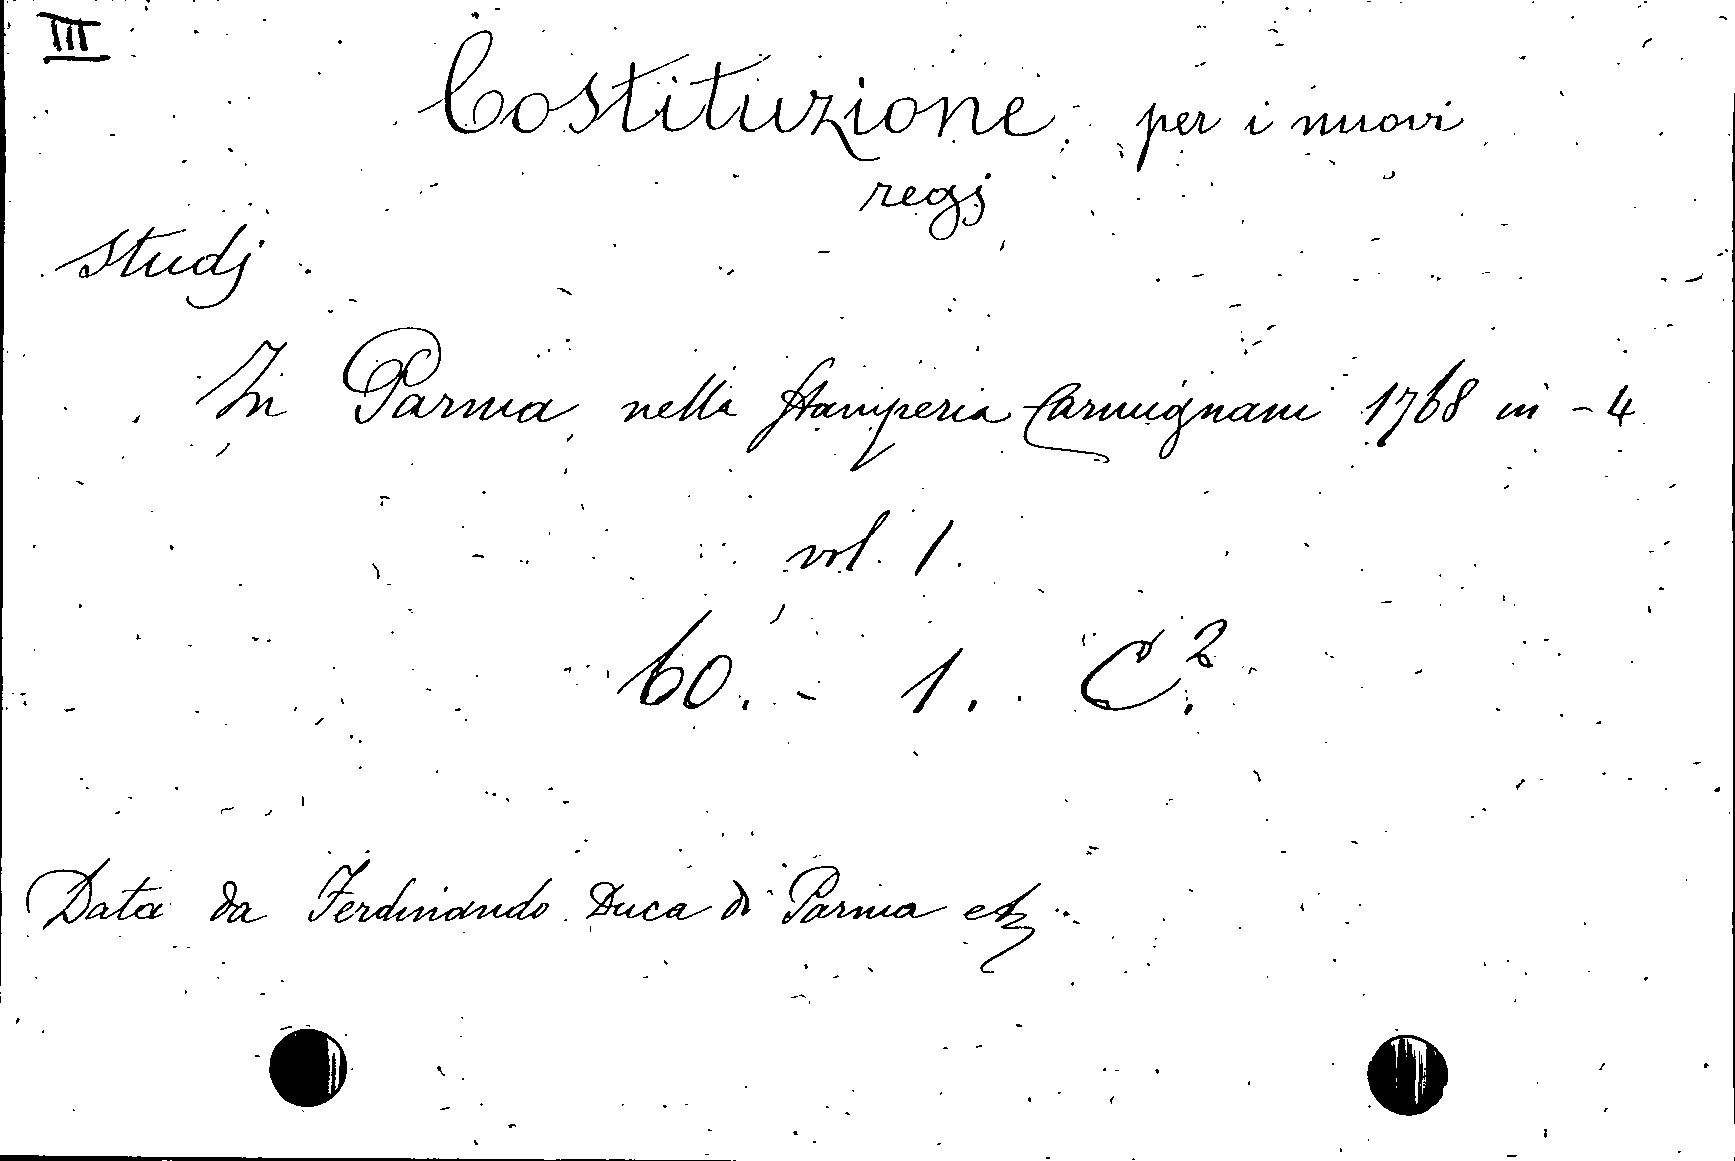 III
Costituzione per i nuovi
regj
studj
In Parma nella Stamperia Carmignani 1768 in - 4
vol. 1.
60. - 1. C².
Data da Ferdinando Duca di Parma etc